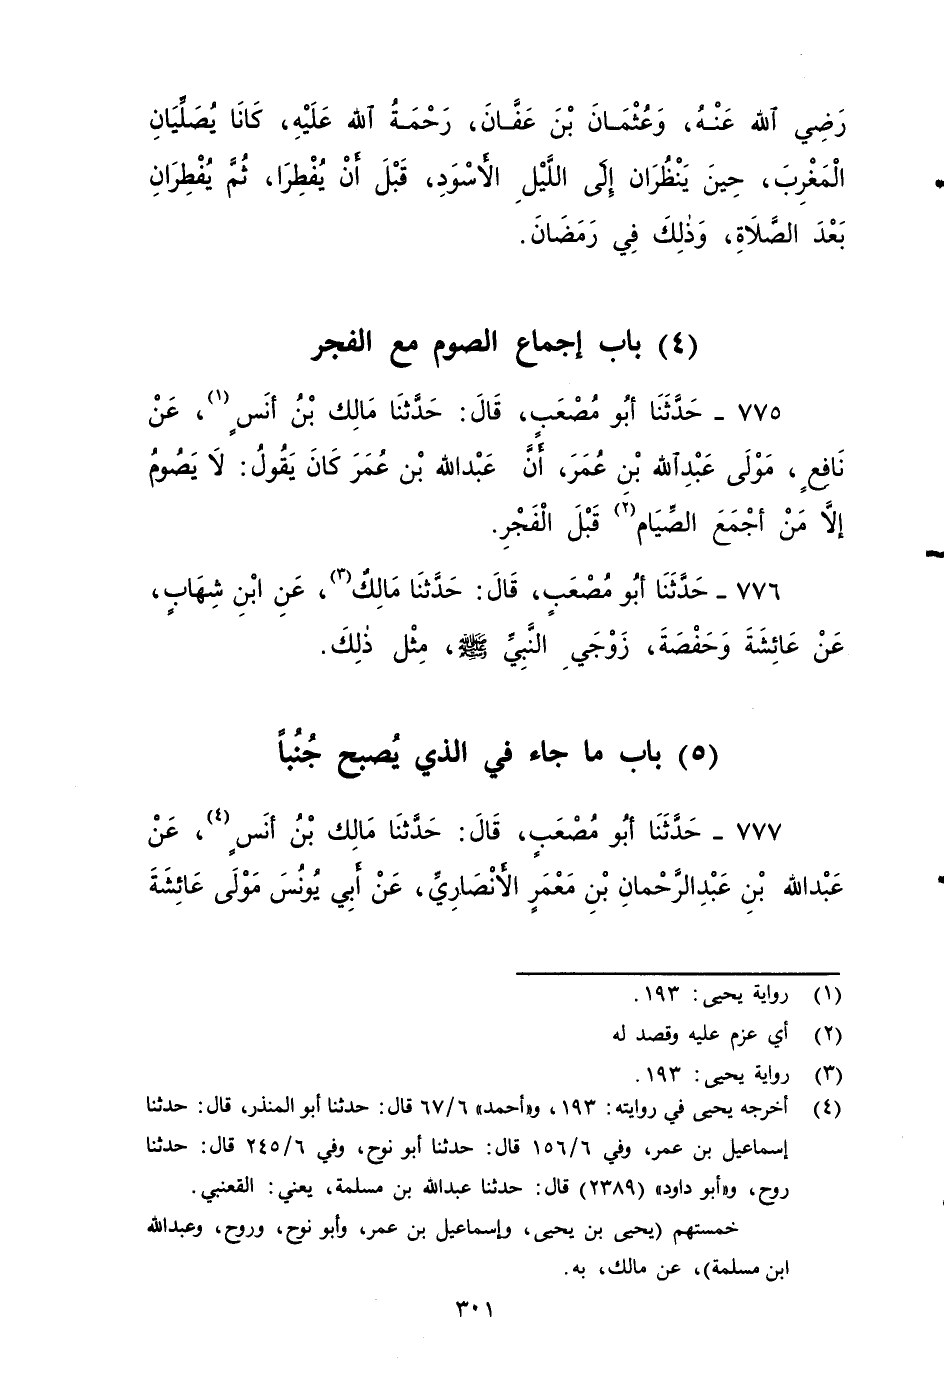 رَضِي ٱلله عَنْـهُ، وَعُثْمَـانَ بْنَ عَفَّـانَ، رَحْمَـةُ ٱلله عَلَيْهِ، كَانَا يُصَلِّيَانِ
الْمَغْرِبَ، حِينَ يَنْظُرَان إِلَى اللَّيْلِ الأَسْوَدِ، قَبْلَ أَنْ يُفْطِرَا، ثُمَّ يُفْطِرَانِ
بَعْدَ الصَّلَاةِ، وَذٰلِكَ فِي رَمَضَانَ.
(٤) باب إجماع الصوم مع الفجر
٧٧٥ ـ حَدَّثَنَا أبُو مُصْعَبٍ، قَالَ: حَدَّثنَا مَالِك بْنُ أنَسٍ(١)، عَنْ
نَافِعٍ، مَوْلَى عَبْدِٱلله بْنِ عُمَرَ، أَنَّ عَبْدالله بْن عُمَرَ كَانَ يَقُولُ: لَا يَصُومُ
إلَّا مَنْ أجْمَعَ الصِّيَام(٢) قَبْلَ الْفَجْرِ.
٧٧٦ ـ حَدَّثَنَا أبُو مُصْعَبٍ، قَالَ: حَدَّثنَا مَالِكٌ(٣)، عَنِ ابْنِ شِهَابٍ،
عَنْ عَائِشَةَ وَحَفْصَةَ، زَوْجَي النَّبِيِّ ﷺ، مِثْل ذٰلِكَ.
(٥) باب ما جاء في الذي يُصبح جُنُباً
٧٧٧ ـ حَدَّثَنَا أبُو مُصْعَبٍ، قَالَ: حَدَّثنَا مَالِك بْنُ أنَسٍ(٤)، عَنْ
عَبْدالله بْنِ عَبْدِالرَّحْمانِ بْنِ مَعْمَرٍ الأَنْصَارِيِّ، عَنْ أَبِي يُونُسَ مَوْلَى عَائِشَةَ
(١) رواية يحيى: ١٩٣.
(٢) أي عزم عليه وقصد له
(٣) رواية يحيى: ١٩٣.
(٤) أخرجه يحيى في روايته: ١٩٣، و«أحمد» ٦٧/٦ قال: حدثنا أبو المنذر، قال: حدثنا
إسماعيل بن عمر، وفي ١٥٦/٦ قال: حدثنا أبو نوح، وفي ٢٤٥/٦ قال: حدثنا
روح، و«أبو داود» (٢٣٨٩) قال: حدثنا عبدالله بن مسلمة، يعني: القعنبي.
خمستهم (يحيى بن يحيى، وإسماعيل بن عمر، وأبو نوح، وروح، وعبدالله
ابن مسلمة)، عن مالك، به.
٣٠١